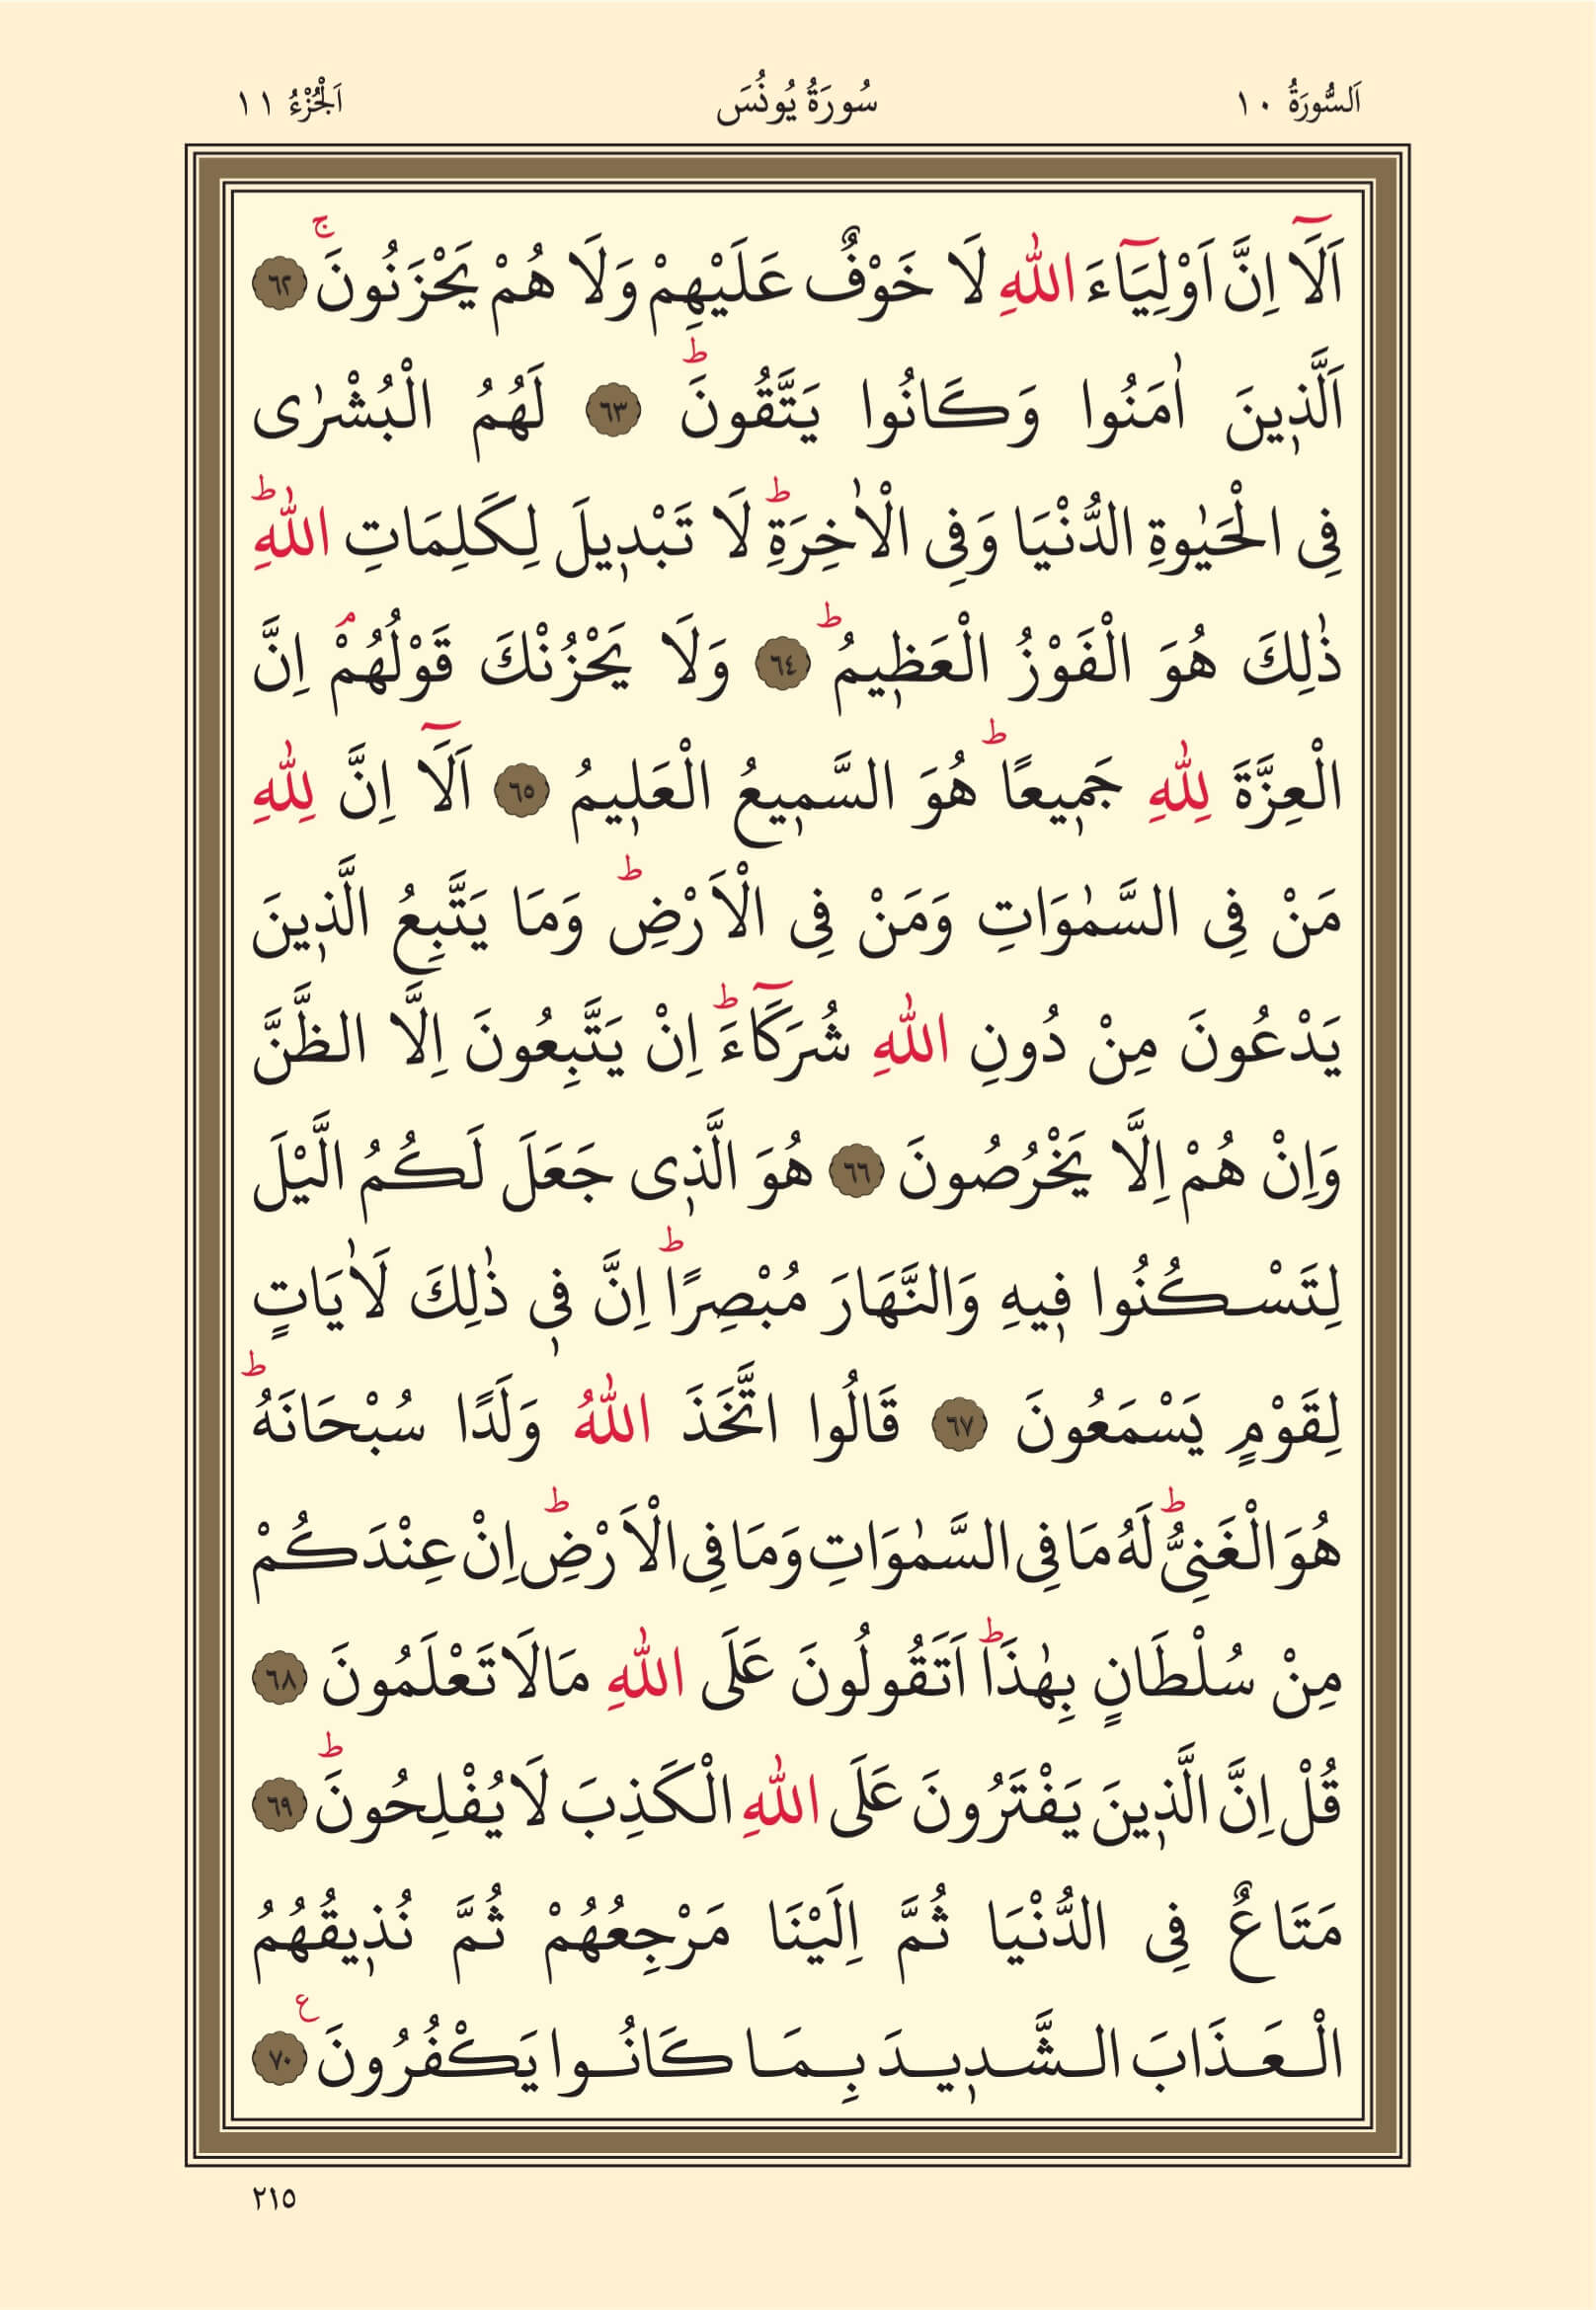 اَلسُّورَةُ ١٠ سُورَةُ يُونُسَ اَلْجُزْءُ ١١
اَلَٓا اِنَّ اَوْلِيَٓاءَ اللّٰهِ لَا خَوْفٌ عَلَيْهِمْ وَلَا هُمْ يَحْزَنُونَۚ ٦٢
اَلَّذ۪ينَ اٰمَنُوا وَكَانُوا يَتَّقُونَۜ ٦٣ لَهُمُ الْبُشْرٰى
فِى الْحَيٰوةِ الدُّنْيَا وَفِى الْاٰخِرَةِۜ لَا تَبْد۪يلَ لِكَلِمَاتِ اللّٰهِۜ
ذٰلِكَ هُوَ الْفَوْزُ الْعَظ۪يمُۜ ٦٤ وَلَا يَحْزُنْكَ قَوْلُهُمْۢ اِنَّ
الْعِزَّةَ لِلّٰهِ جَم۪يعًاۜ هُوَ السَّم۪يعُ الْعَل۪يمُ ٦٥ اَلَٓا اِنَّ لِلّٰهِ
مَنْ فِى السَّمٰوَاتِ وَمَنْ فِى الْاَرْضِۜ وَمَا يَتَّبِعُ الَّذ۪ينَ
يَدْعُونَ مِنْ دُونِ اللّٰهِ شُرَكَٓاءَۜ اِنْ يَتَّبِعُونَ اِلَّا الظَّنَّ
وَاِنْ هُمْ اِلَّا يَخْرُصُونَ ٦٦ هُوَ الَّذ۪ى جَعَلَ لَكُمُ الَّيْلَ
لِتَسْكُنُوا ف۪يهِ وَالنَّهَارَ مُبْصِرًاۜ اِنَّ ف۪ى ذٰلِكَ لَاٰيَاتٍ
لِقَوْمٍ يَسْمَعُونَ ٦٧ قَالُوا اتَّخَذَ اللّٰهُ وَلَدًا سُبْحَانَهُۜ
هُوَ الْغَنِىُّۜ لَهُ مَا فِى السَّمٰوَاتِ وَمَا فِى الْاَرْضِۜ اِنْ عِنْدَكُمْ
مِنْ سُلْطَانٍ بِهٰذَاۜ اَتَقُولُونَ عَلَى اللّٰهِ مَا لَا تَعْلَمُونَ ٦٨
قُلْ اِنَّ الَّذ۪ينَ يَفْتَرُونَ عَلَى اللّٰهِ الْكَذِبَ لَا يُفْلِحُونَۜ ٦٩
مَتَاعٌ فِى الدُّنْيَا ثُمَّ اِلَيْنَا مَرْجِعُهُمْ ثُمَّ نُذ۪يقُهُمُ
الْعَذَابَ الشَّد۪يدَ بِمَا كَانُوا يَكْفُرُونَ ع ٧٠
٢١٥